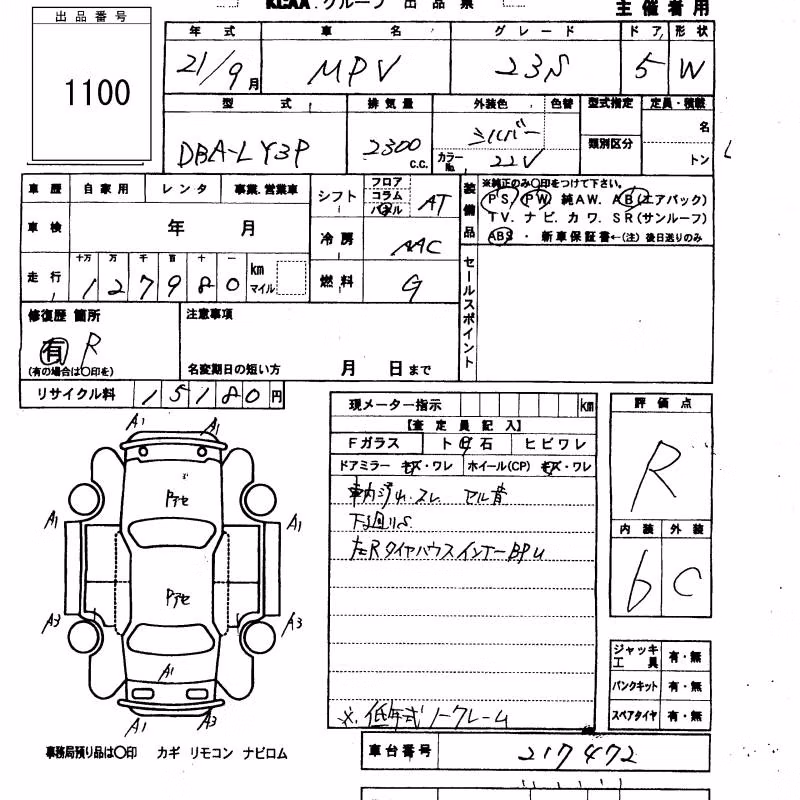 KCAA.グループ 出品票
主催者用
出品番号
1100
年式 車名 グレード ドア 形状
21/9月 MPV 23S 5 W
型式 排気量 外装色 色替 型式指定 定員・積載
DBA-LY3P 2300 c.c. シルバー カラーNo. 22V 類別区分 名 トン
車歴 自家用 レンタ 事業.営業車
車検 年 月
走行 十万 万 千 百 十 一 km マイル
127980
シフト フロア コラム パネル AT
冷房 AAC
燃料 G
装備品 ※純正のみ○印をつけて下さい。
PS. PW. 純AW. AB(エアバック)
TV. ナビ. カワ. SR(サンルーフ)
ABS ・ 新車保証書←(注) 後日送りのみ
セールスポイント
修復歴 箇所
有 R
(有の場合は○印を)
注意事項
名変期日の短い方 月 日まで
リサイクル料 15180円
現メーター指示 km
【査定員記入】
Fガラス ト飛石 ヒビワレ
ドアミラー キズ・ワレ ホイール(CP) キズ・ワレ
車内汚れ.スレ マル音
下廻りS
左RタイヤハウスインナーBPU
※.低年式ノークレーム
評価点
R
内装 外装
6 C
ジャッキ工具 有・無
パンクキット 有・無
スペアタイヤ 有・無
A1 A1
Pアセ
A1 A1
Pアセ
A3 A3
A1
A1 A3
事務局預り品は○印 カギ リモコン ナビロム
車台番号 217472